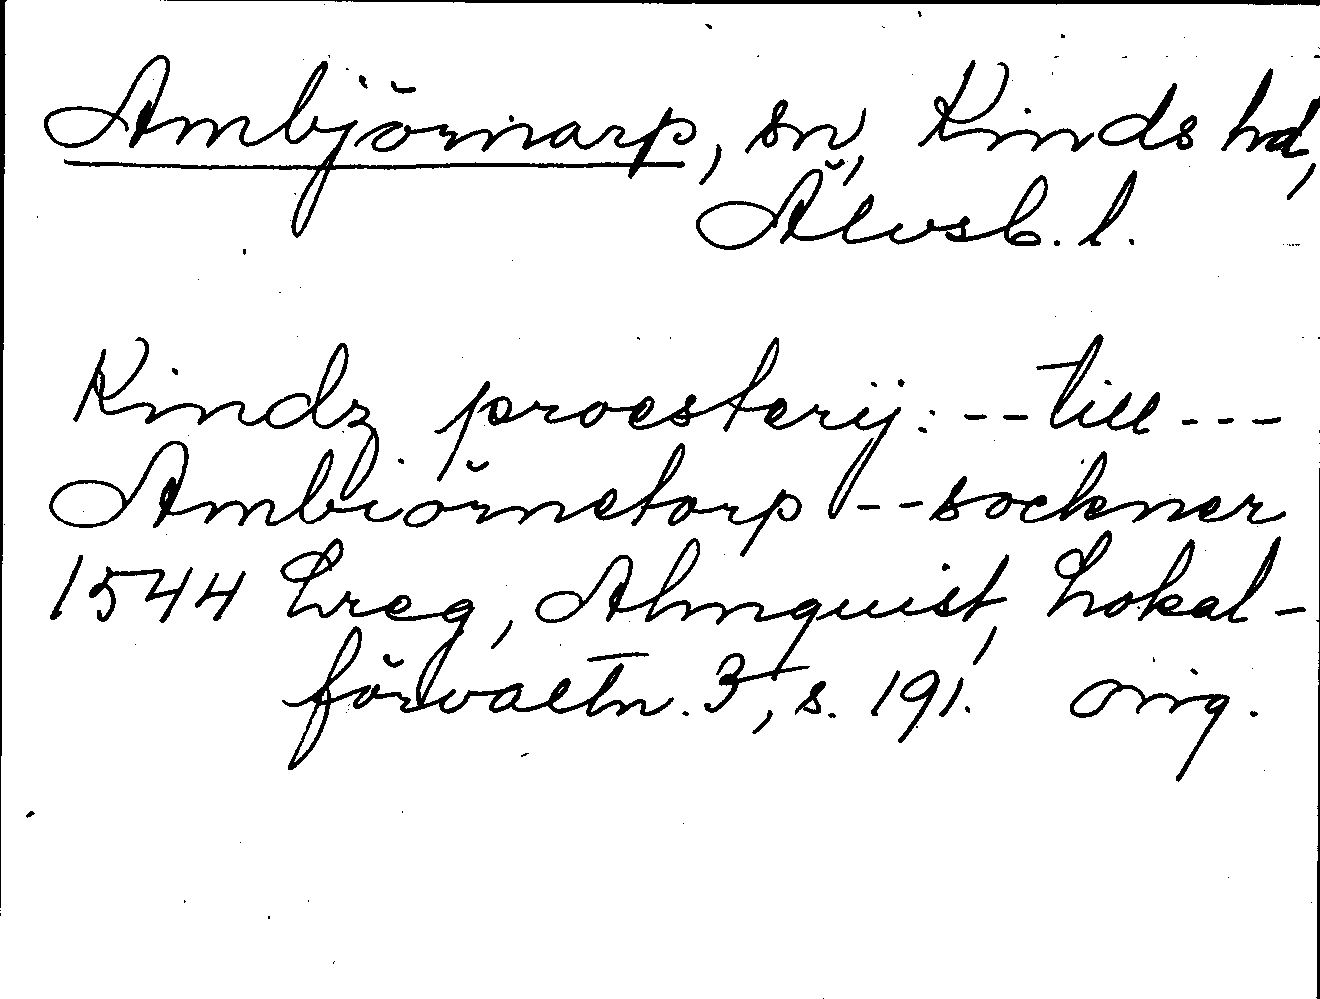 Ambjörnarp, sn, Kinds hd,
Älvsb. l.
Kindz proesterij: -- till ---
Ambiörnetorp -- sockner
1544 Lreg, Almquist, Lokal-
förvaltn. 3, s. 191. orig.